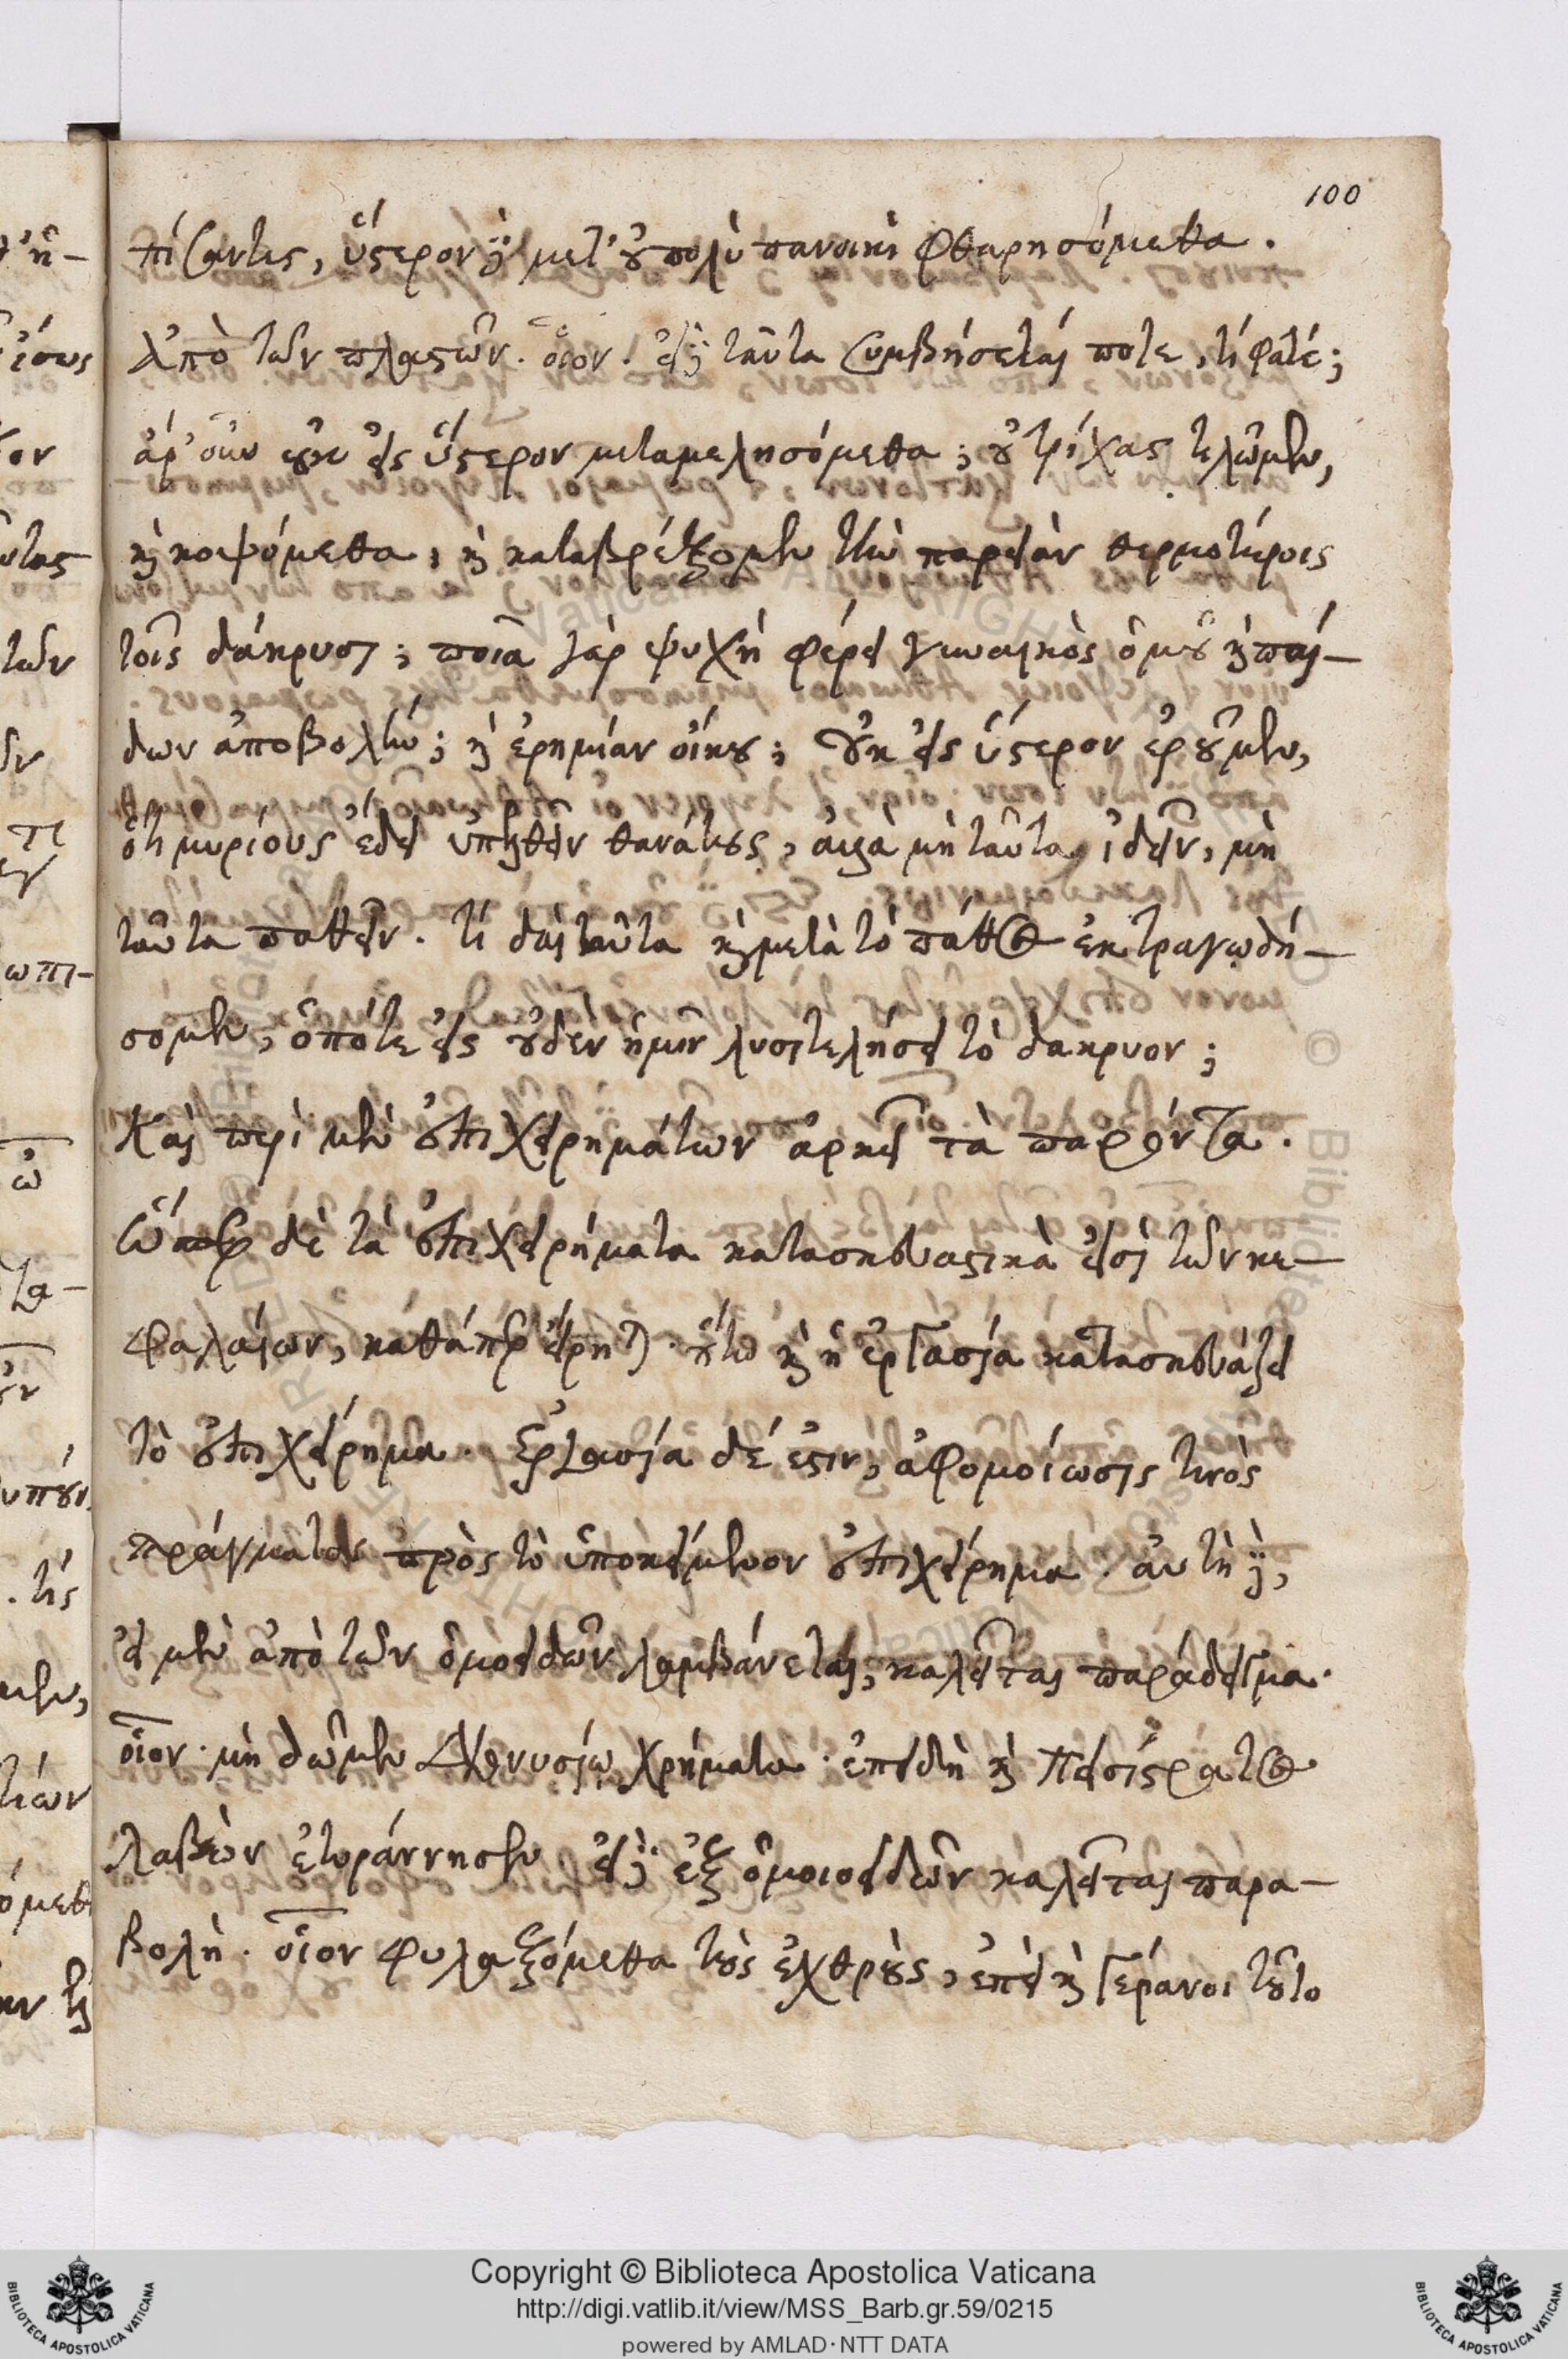 100
πίσαντες, ὕστερον δὲ μετ' οὐ πολὺ πανοικὶ φθαρησόμεθα.
Ἀπὸ τῶν πλαστῶν. οἷον. εἰ δὲ ταῦτα συμβήσεταί ποτε, τί φατέ;
ἆρ' οὖν οὐκ εἰς ὕστερον μεταμελησόμεθα; οὐ τρίχας τιλῶμεν,
καὶ κοψόμεθα, καὶ καταβρέξομεν τὴν παρειὰν θερμοτέροις
τοῖς δάκρυσι; ποία γὰρ ψυχὴ φέρει γυναικὸς ὁμοῦ καὶ παί-
δων ἀποβολὴν; καὶ ἐρημίαν οἴκου; οὐκ εἰς ὕστερον ἐροῦμεν,
ὅτι μυρίους ἔδει ὑπελθεῖν θανάτους, ἀλλὰ μὴ ταῦτα ἰδεῖν, μὴ
ταῦτα παθεῖν. τί δαὶ ταῦτα καὶ μετὰ τὸ πάθος ἐκτραγῳδή-
σομεν, ὁπότε εἰς οὐδὲν ἡμῖν λυσιτελήσει τὸ δακρυον;
Καὶ περὶ μὲν ἐπιχειρημάτων ἀρκεῖ τὰ παρόντα.
Ὥσπερ δὲ τὰ ἐπιχειρήματα κατασκευαστικὰ εἰσὶ τῶν κε-
φαλαίων, καθάπερ εἴρηται. οὕτω καὶ ἡ ἐργασία κατασκευάζει
τὸ ἐπιχείρημα. Ἐργασία δέ ἐστιν, ἀφομοίωσις τινὸς
πράγματος πρὸς τὸ ὑποκείμενον ἐπιχείρημα. αὐτὴ δὲ,
εἰ μὲν ἀπὸ τῶν ὁμοειδῶν λαμβάνεται, καλεῖται παράδειγμα.
οἷον. μὴ δῶμεν Διονυσίῳ χρήματα. ἐπειδὴ καὶ Πεισίστρατος
λαβὼν ἐτυράννησεν. εἰ δὲ ἐξ ὁμοιοειδῶν καλεῖται παρα-
βολὴ. οἷον φυλαξόμεθα τοὺς ἐχθροὺς, ἐπεὶ καὶ γέρανοι τοῦτο
Copyright © Biblioteca Apostolica Vaticana
http://digi.vatlib.it/view/MSS_Barb.gr.59/0215
powered by AMLAD·NTT DATA